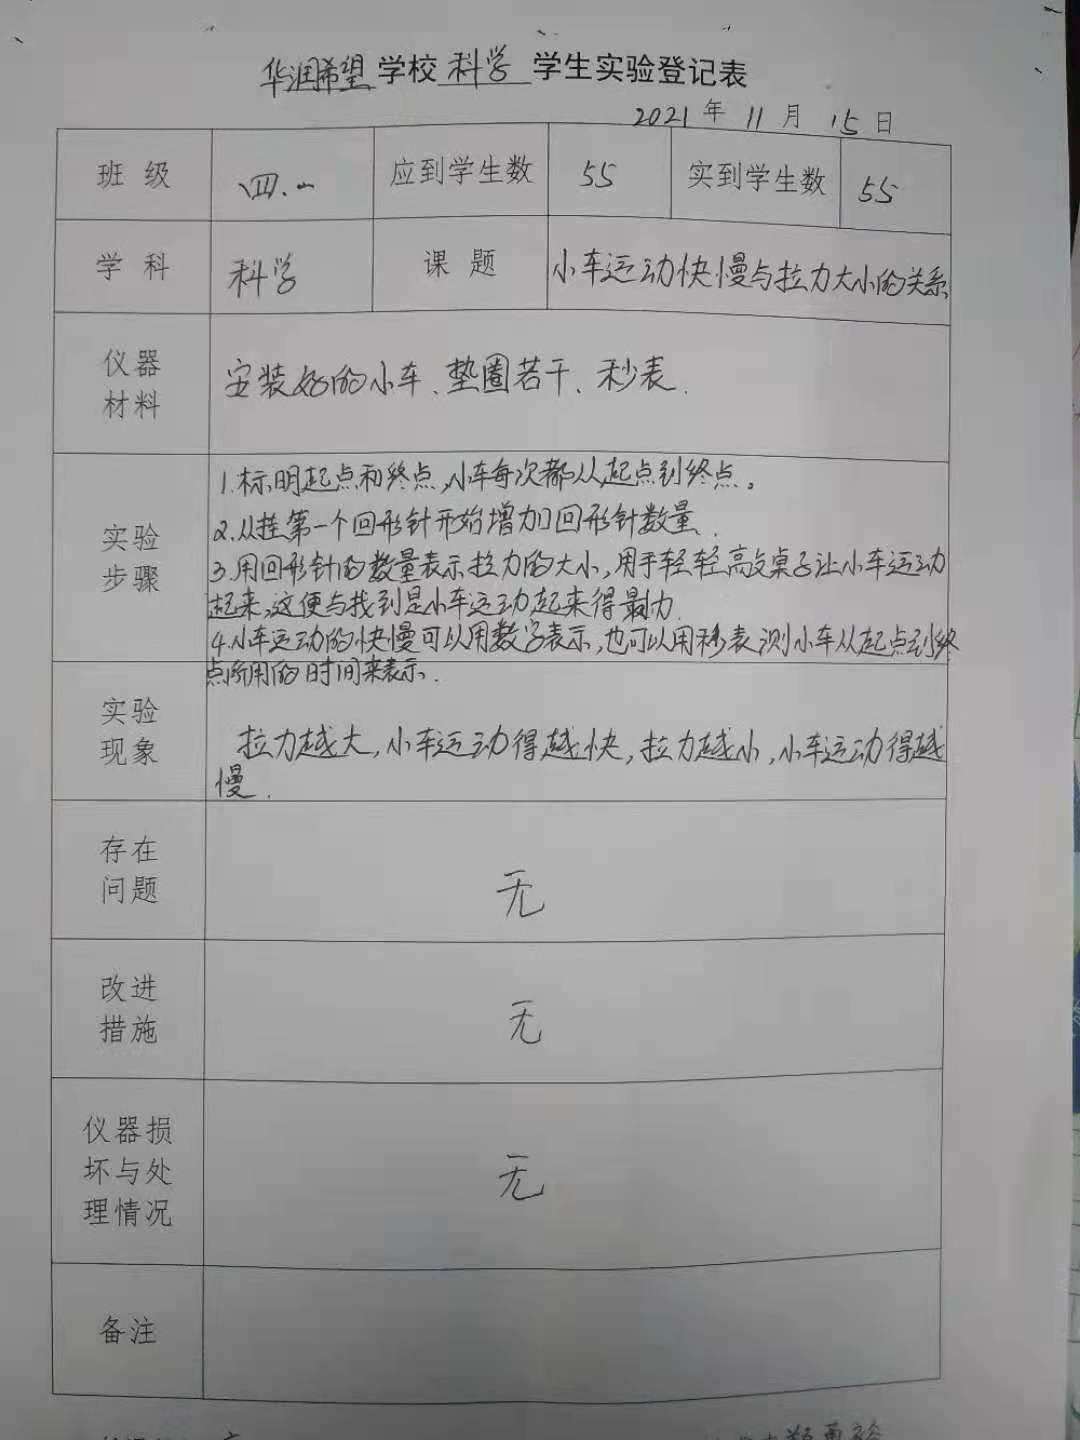 华润希望学校科学学生实验登记表
2021年11月15日
班级 四.一 应到学生数 55 实到学生数 55
学科 科学 课题 小车运动快慢与拉力大小的关系
仪器
材料
安装好的小车、垫圈若干、秒表.
实验
步骤
1.标明起点和终点,小车每次都从起点到终点。
2.从挂第一个回形针开始增加回形针数量.
3.用回形针的数量表示拉力的大小,用手轻轻敲桌子让小车运动
起来,这便与找到是小车运动起来得最力.
4.小车运动的快慢可以用数字表示,也可以用秒表测小车从起点到终
点所用的时间来表示.
实验
现象
拉力越大,小车运动得越快,拉力越小,小车运动得越
慢.
存在
问题
无
改进
措施
无
仪器损
坏与处
理情况
无
备注